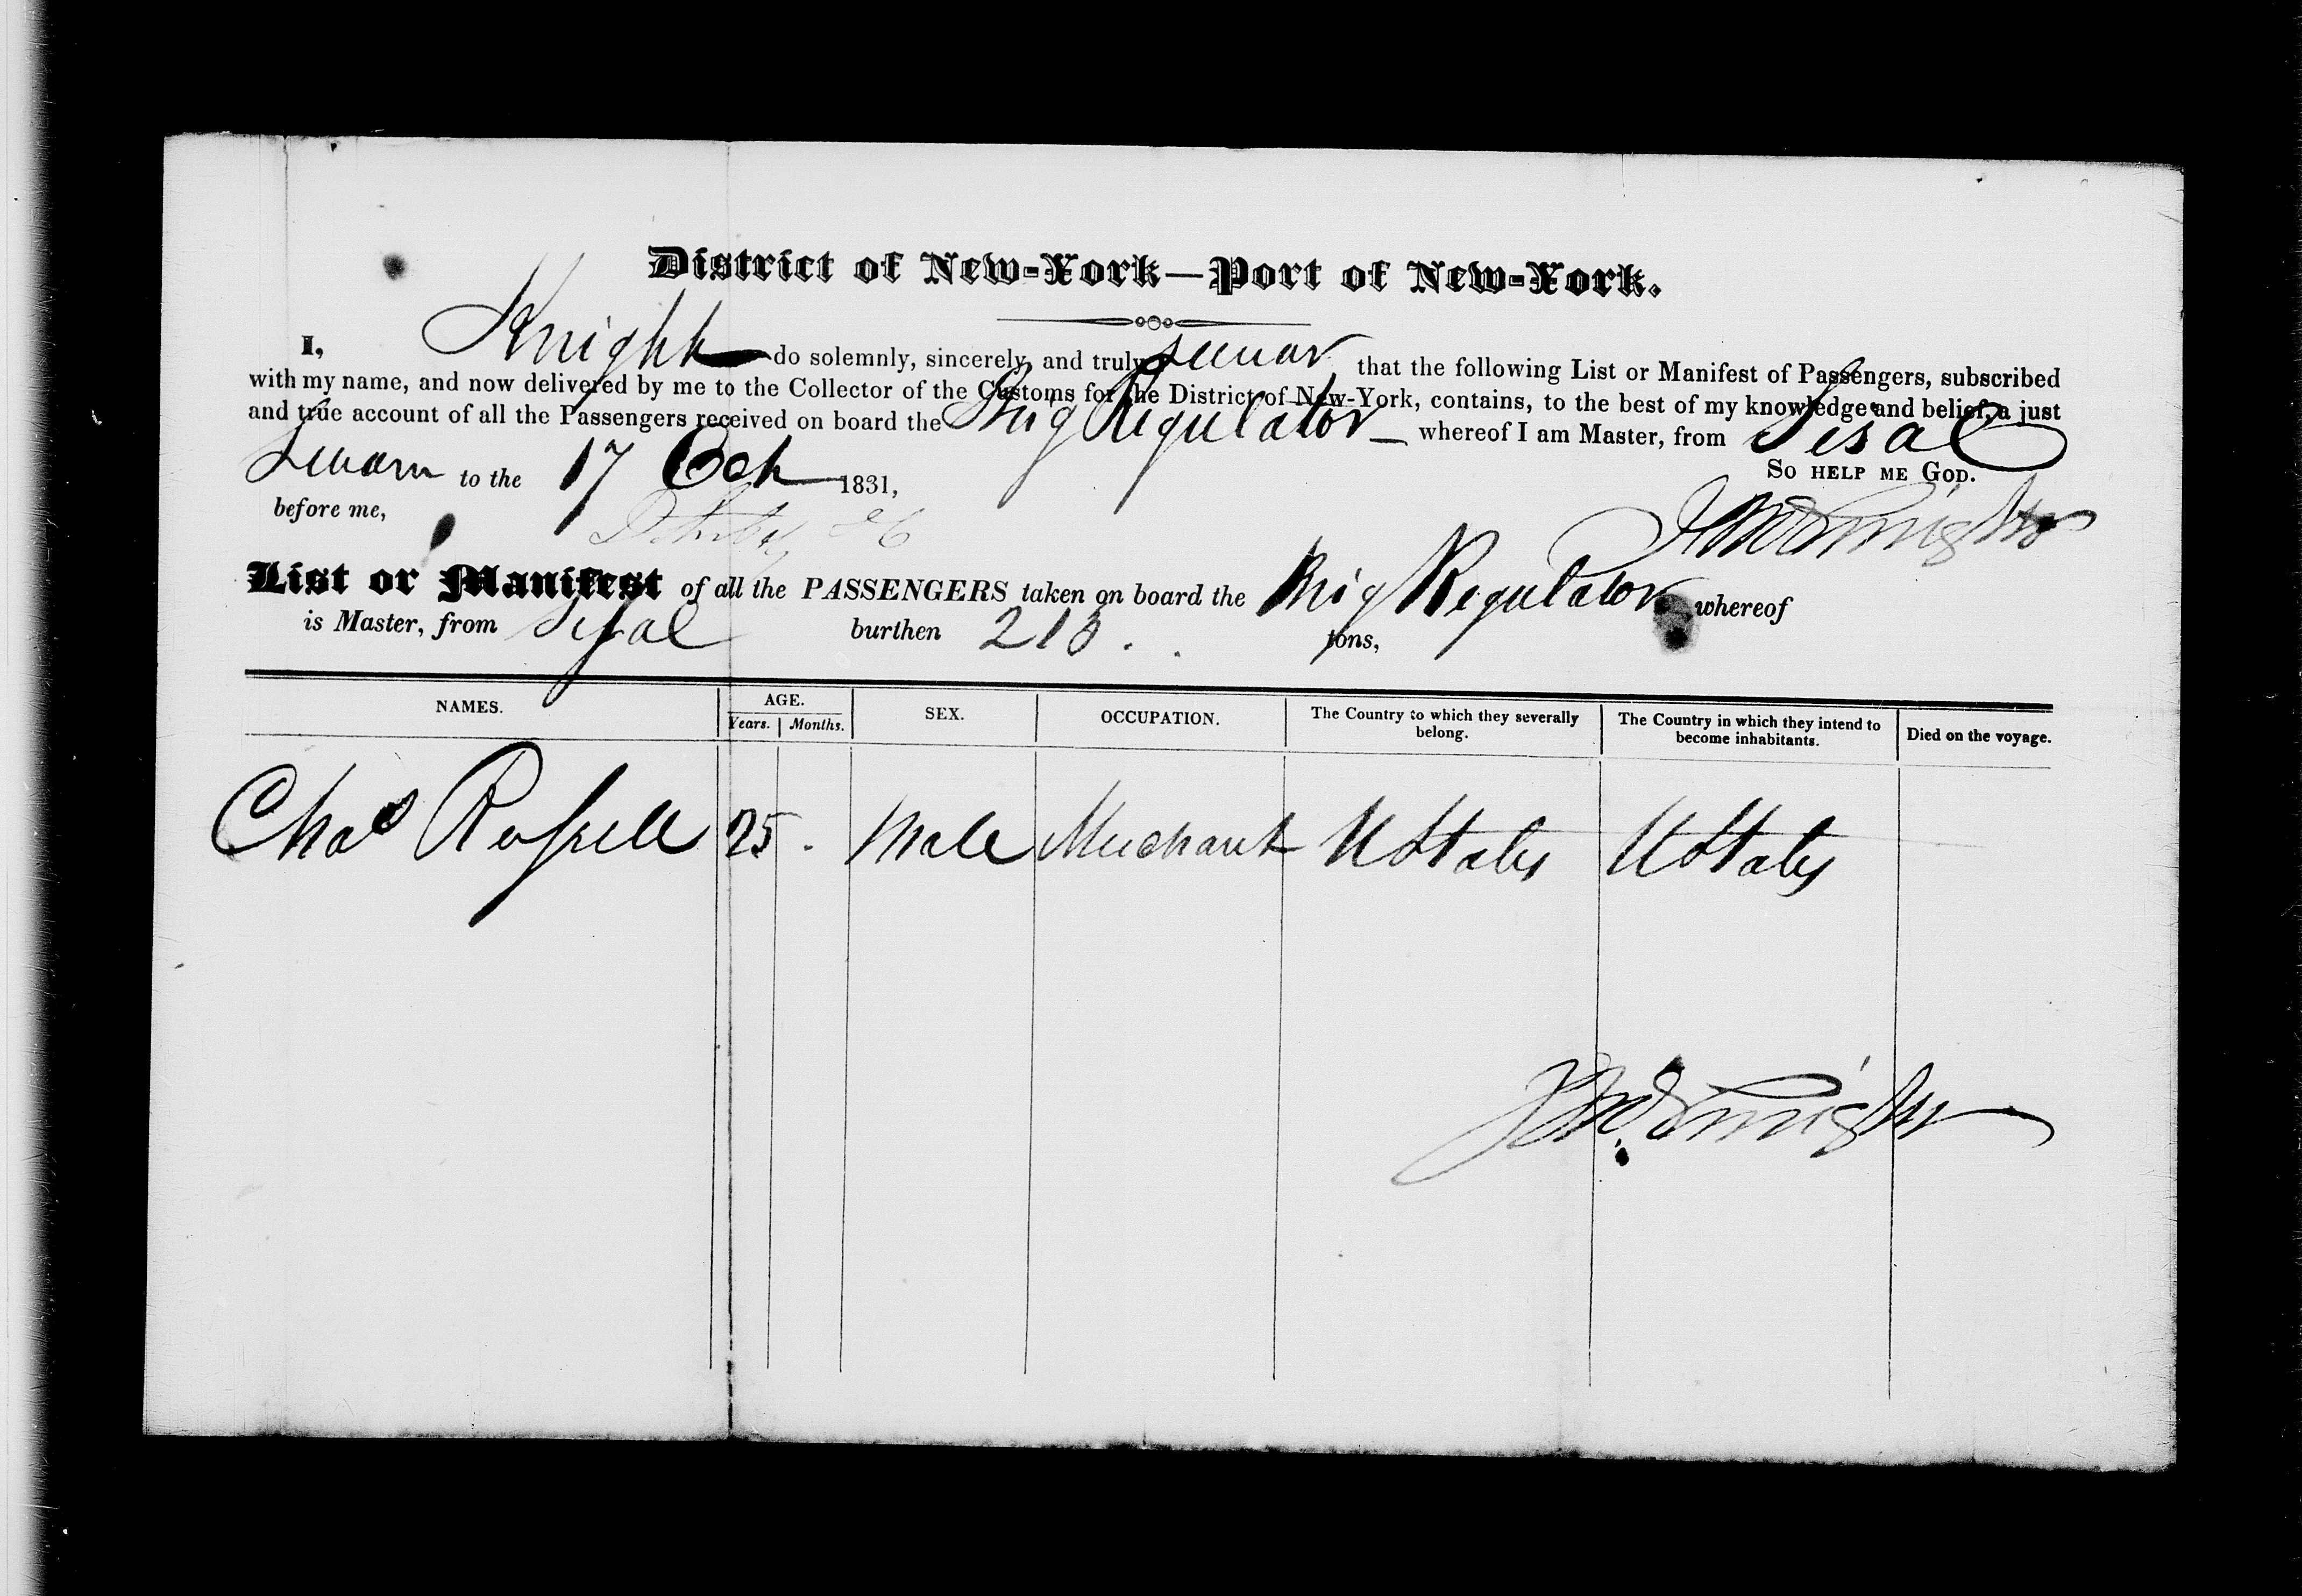 District of New-York—Port of New-York.
I, Knight do solemnly, sincerely, and truly swear that the following List or Manifest of Passengers, subscribed
with my name, and now delivered by me to the Collector of the Customs for the District of New-York, contains, to the best of my knowledge and belief, a just
and true account of all the Passengers received on board the Brig Regulator whereof I am Master, from Sisal
Sworn to the 17 Oct 1831, So help me God.
before me,
List or Manifest of all the PASSENGERS taken on board the Brig Regulator whereof
is Master, from Sisal burthen 213 tons,
NAMES. AGE. Years. Months. SEX. OCCUPATION. The Country to which they severally belong. The Country in which they intend to become inhabitants. Died on the voyage.
Chas Russell 25 Male Merchant U States U States
Knight